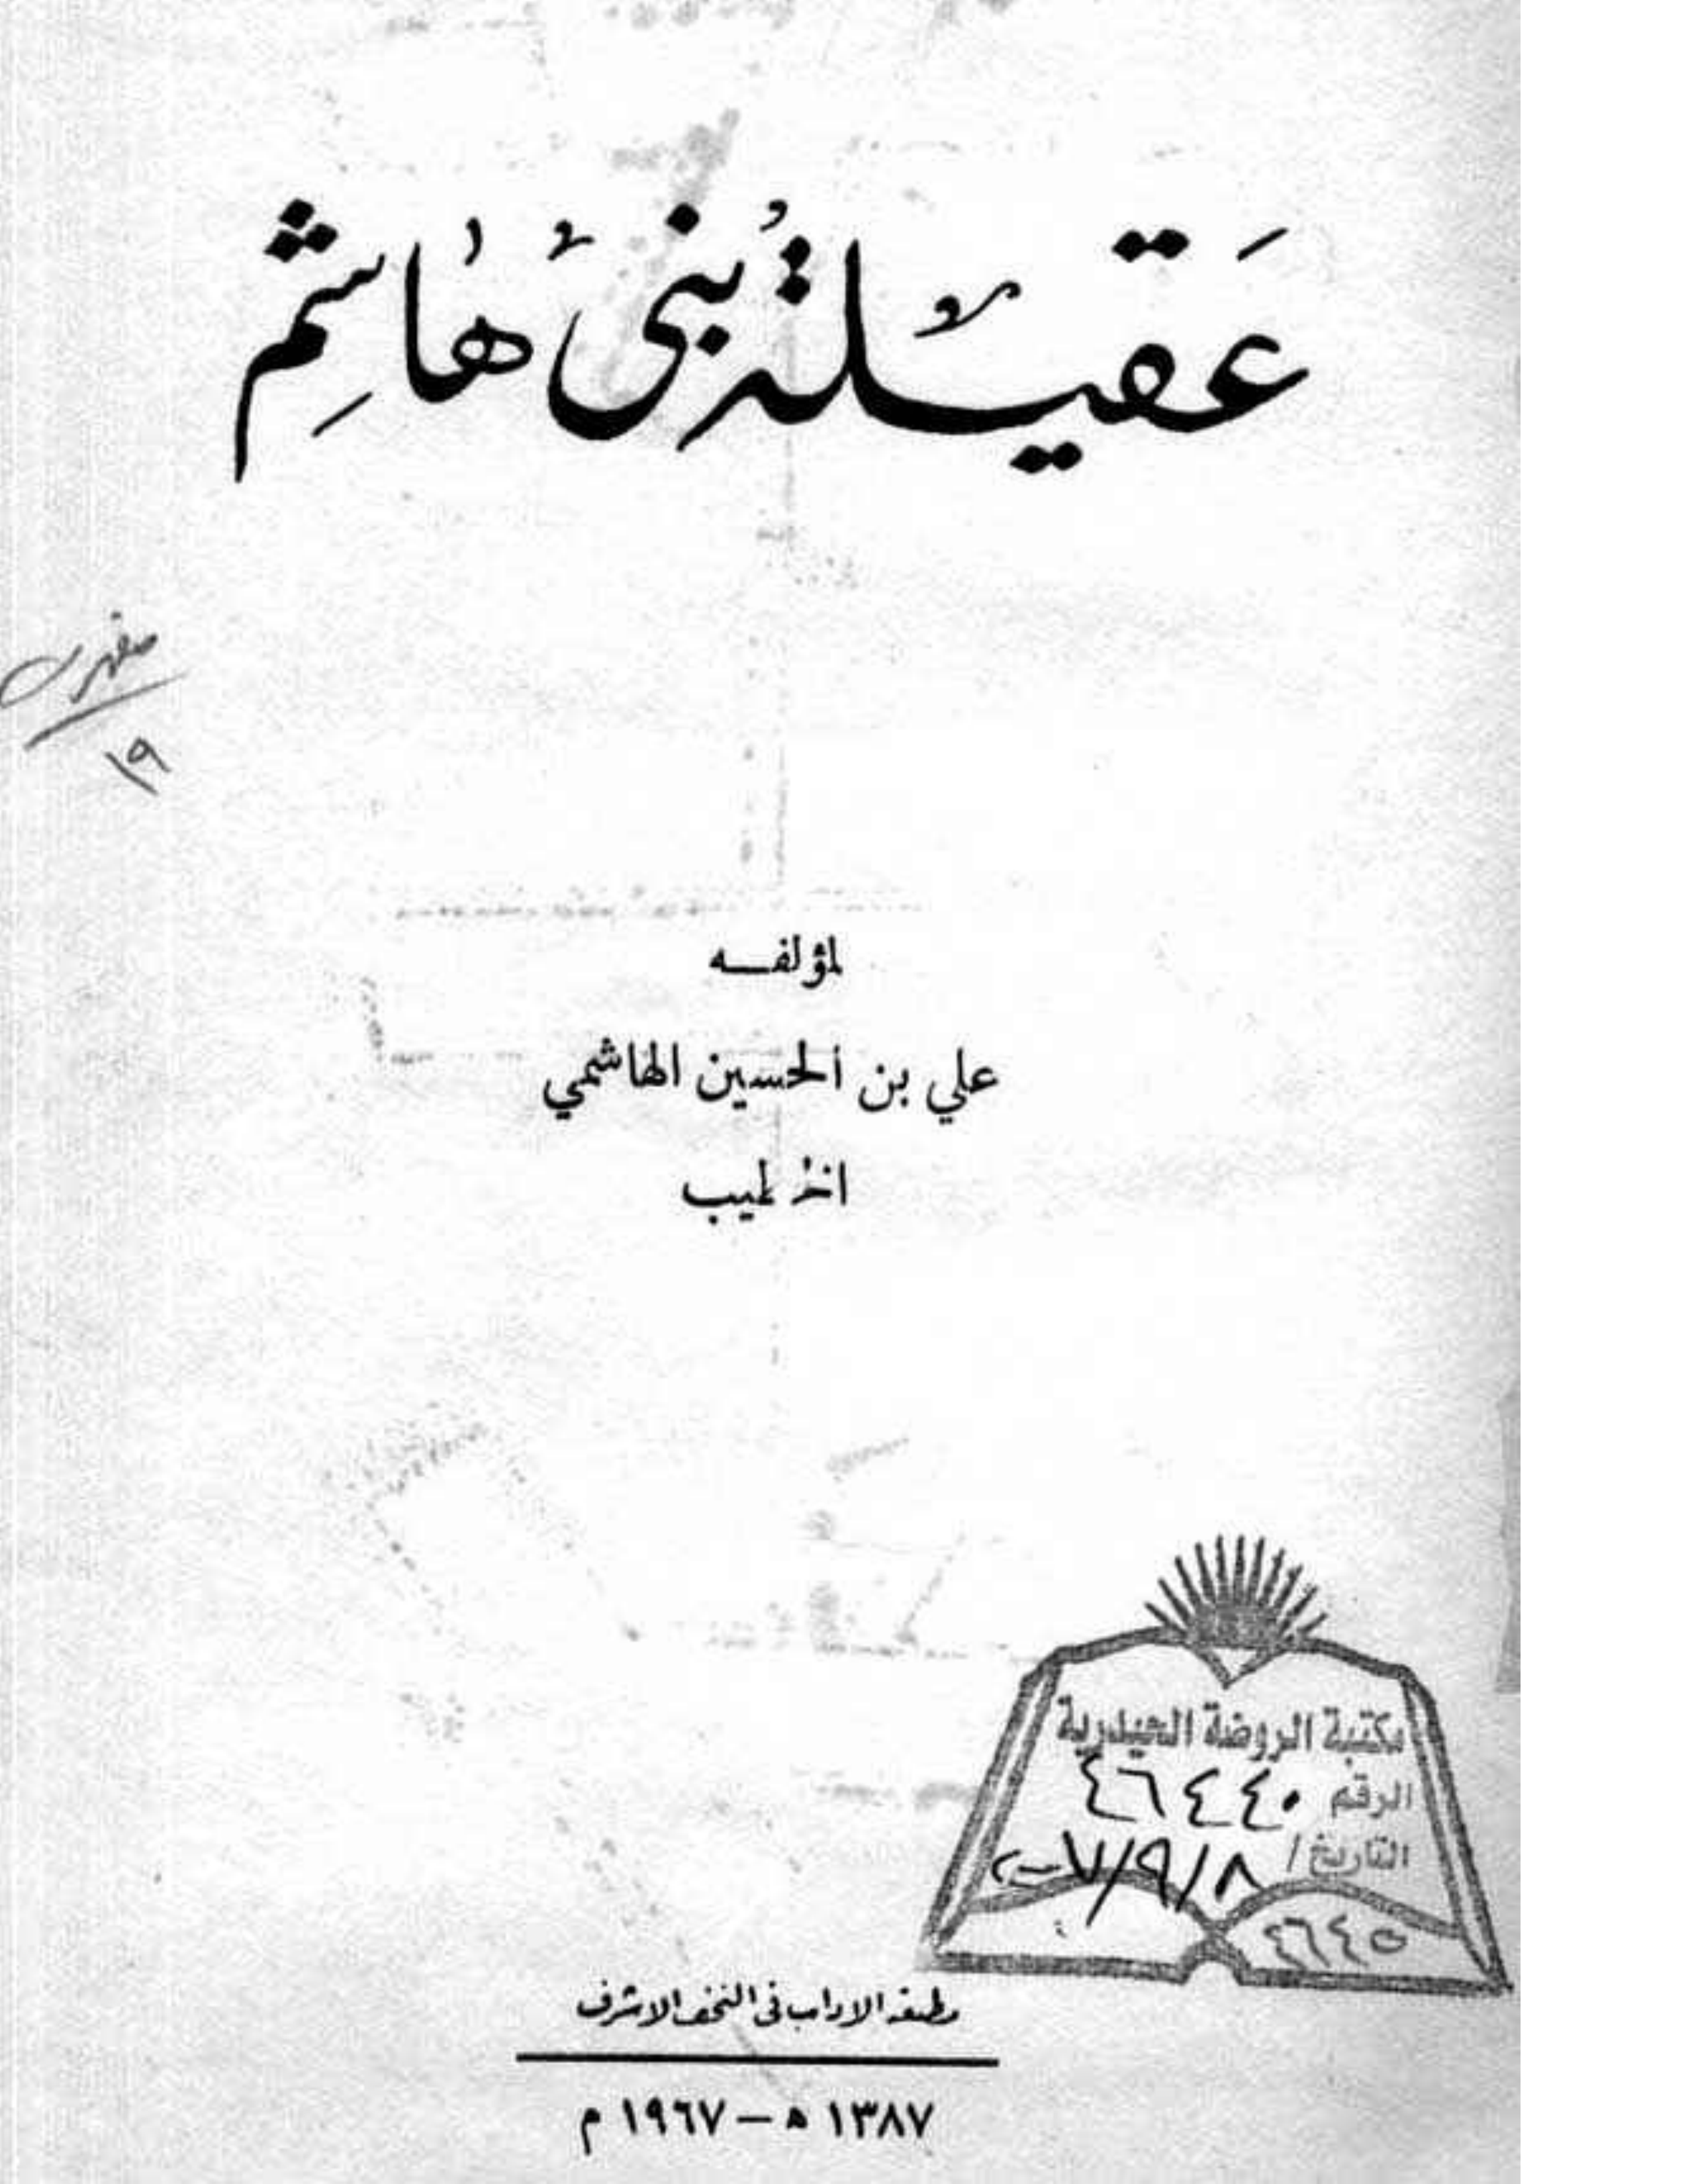 عَقيلةُ بَني هاشِم
١٩
لمؤلفـــه
علي بن الحسين الهاشمي
الخطيب
مكتبة الروضة الحيدرية
الرقم ٤٦٤٤٠
التاريخ / ٢٠٠٧/٩/٨
٤٦٤٥
مطبعة الاداب في النجف الاشرف
١٣٨٧ ه – ١٩٦٧ م